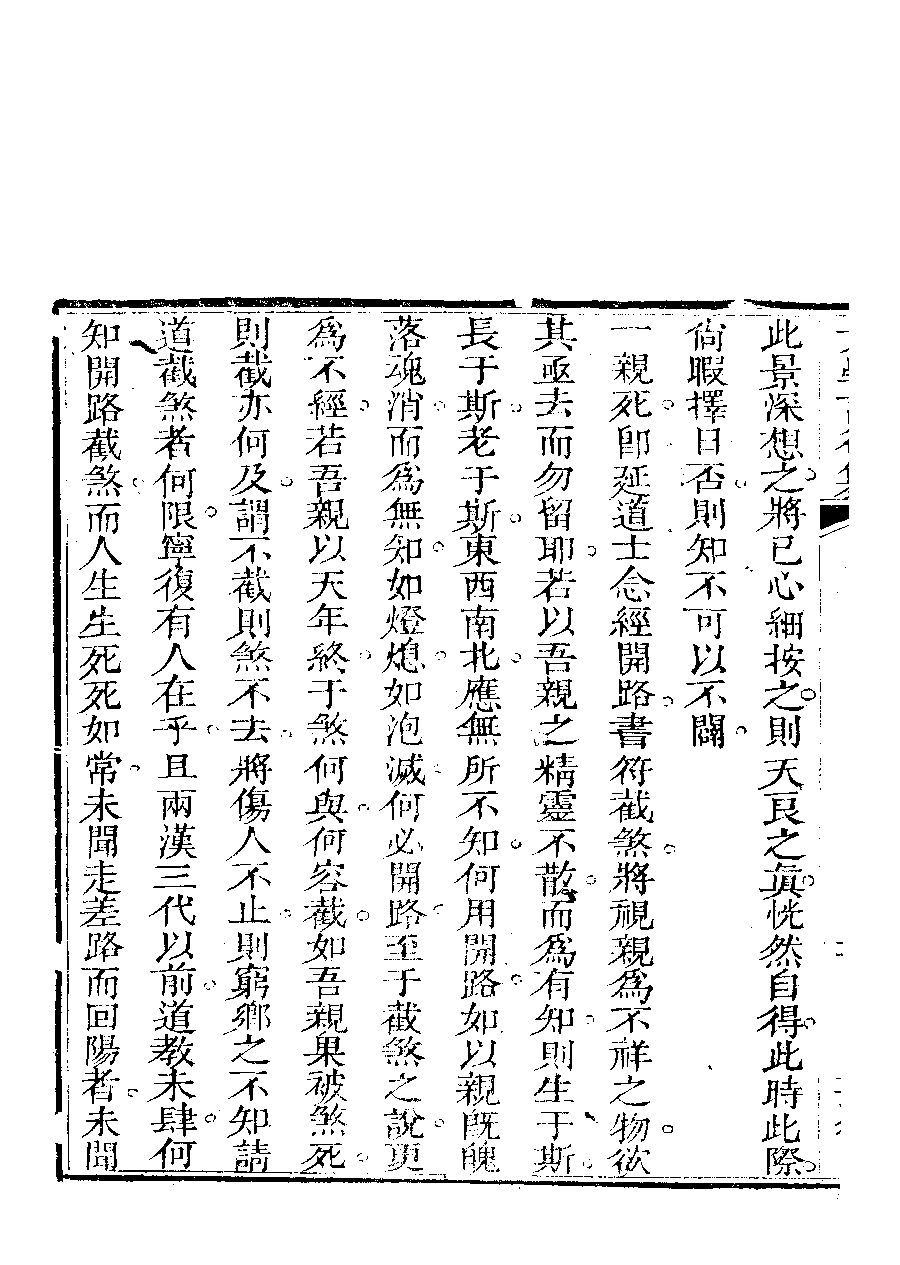 此景深想之將己心細按之則天良之眞恍然自得此時此際
尙暇擇日否則知不可以不闢
一親死卽延道士念經開路書符截煞將視親爲不祥之物欲
其亟去而勿留耶若以吾親之精靈不散而爲有知則生于斯
長于斯老于斯東西南北應無所不知何用開路如以親旣魄
落魂消而爲無知如燈熄如泡滅何必開路至于截煞之說更
爲不經若吾親以天年終于煞何與何容截如吾親果被煞死
則截亦何及謂不截則煞不去將傷人不止則窮鄉之不知請
道截煞者何限寧復有人在乎且兩漢三代以前道教未肆何
知開路截煞而人生生死死如常未聞走差路而回陽者未聞